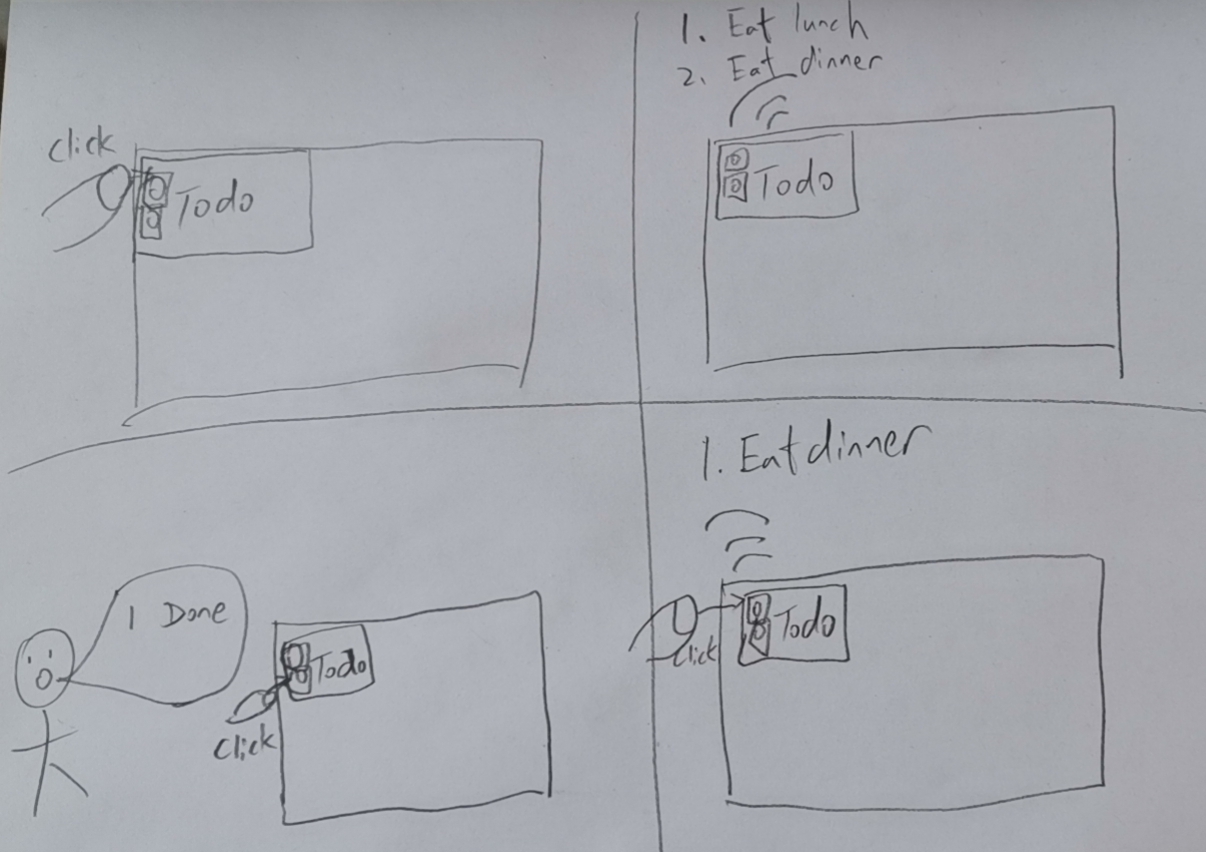 click
Todo
1. Eat lunch
2. Eat dinner
Todo
1 Done
Todo
click
1. Eat dinner
Todo
click